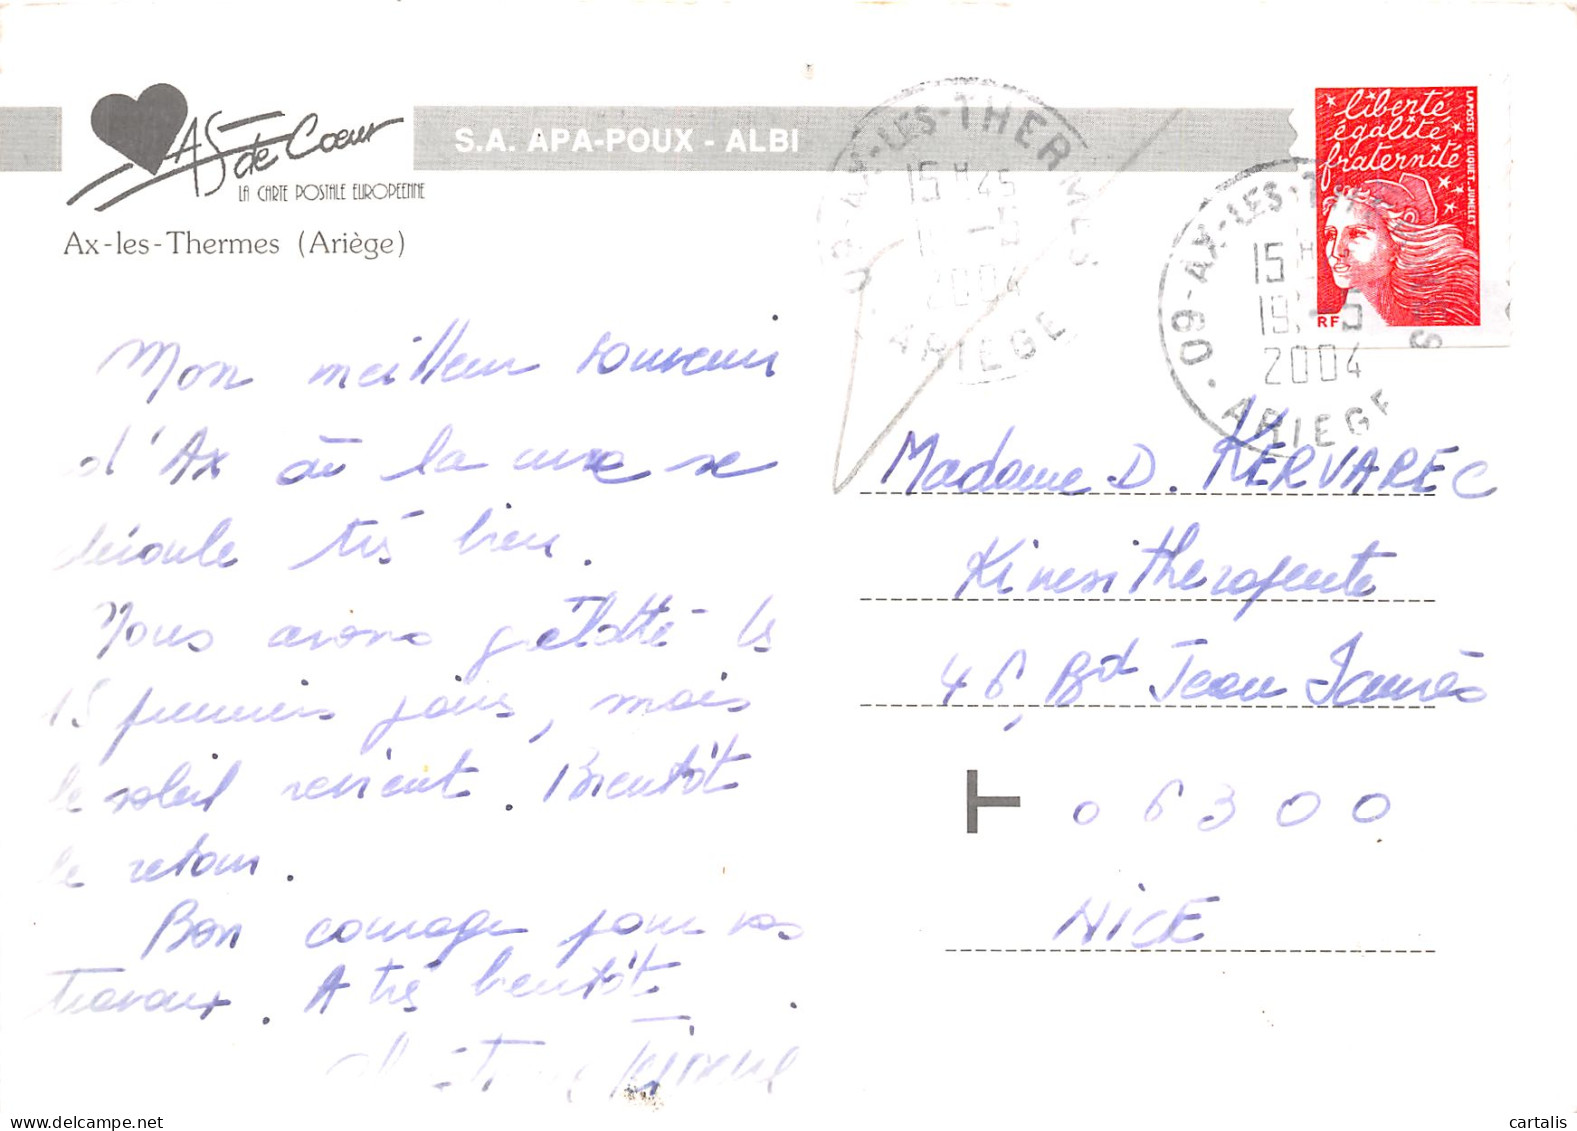 AS de Cœur
LA CARTE POSTALE EUROPEENNE
S.A. APA-POUX - ALBI
Ax-les-Thermes (Ariège)
09-AX-LES-THERMES
15 H 45
2004
ARIEGE
09-AX-LES-T
15 H
19
2004
ARIEGE
liberté
égalité
fraternité
LAPOSTE LUQUET.JUMELET
RF
Mon meilleur souvenir
d'Ax où la cure se
déroule très bien.
Nous avons grelotté les
15 premiers jours, mais
le soleil revient. Bientôt
le retour.
Bon courage pour vos
travaux. A très bientôt
Madame D. KERVAREC
Kinesitherapeute
46, Bd Jean Jaurès
T 06300
NICE
cartalis